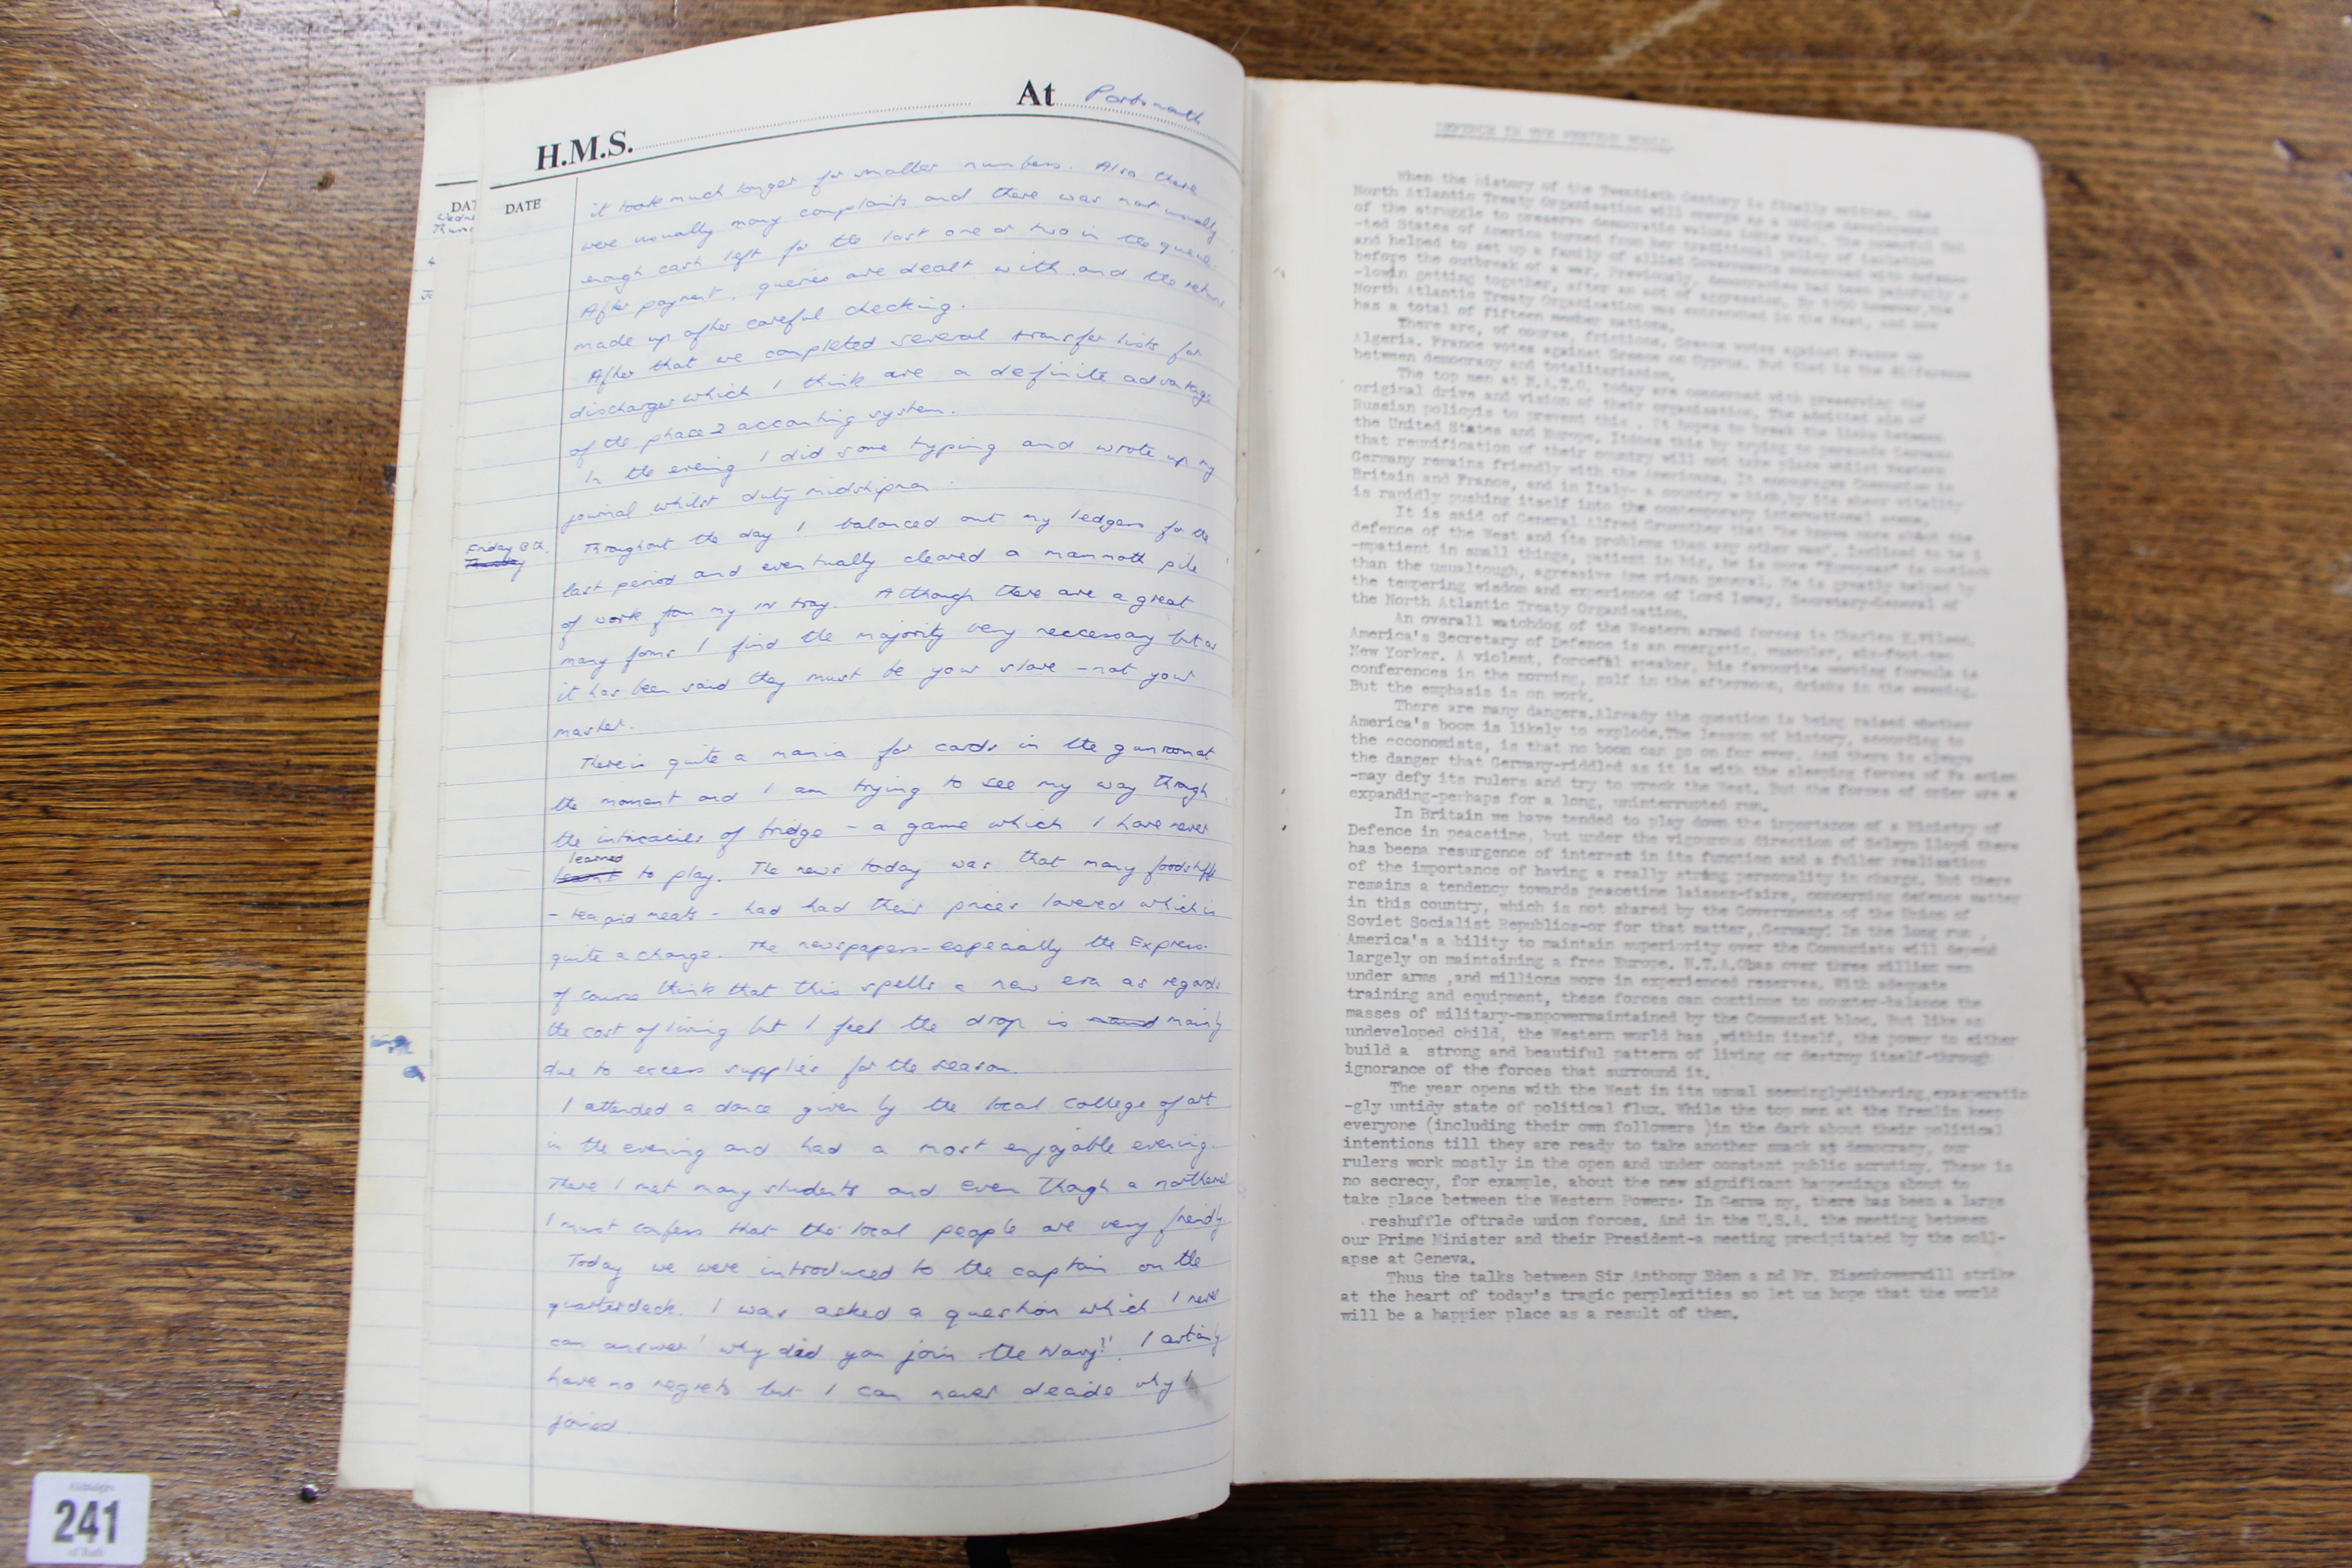 H.M.S. At Portsmouth
DATE
it took much longer for smaller numbers. Also there
were usually many complaints and there was not usually
enough cash left for the last one or two in the queue.
After payment, queries are dealt with and the return
made up after careful checking.
After that we completed several transfer lists for
discharges which I think are a definite advantage
of the phase 2 accounting system.
In the evening I did some typing and wrote up my
journal whilst duty midshipman.
Friday 13th.
Thursday
Throughout the day I balanced out my ledgers for the
last period and eventually cleared a mammoth pile
of work from my in tray. Although there are a great
many forms I find the majority very neccessary but as
it has been said they must be your slave - not your
master.
There is quite a mania for cards in the gunroom at
the moment and I am trying to see my way through
the intricacies of bridge - a game which I have never
learned
learnt to play. The news today was that many foodstuffs
- tea and meats - had had their prices lowered which is
quite a change. The newspapers - especially the Express
of course think that this spells a new era as regards
the cost of living but I feel the drop is mainly
due to excess supplies for the season.
I attended a dance given by the local college of art
in the evening and had a most enjoyable evening.
There I met many students and even though a northerner
I must confess that the local people are very friendly.
Today we were introduced to the captain on the
quarterdeck. I was asked a question which I never
can answer 'why did you join the Navy?'. I certainly
have no regrets but I can never decide why I
joined.
DEFENCE IN THE WESTERN WORLD.
When the history of the Twentieth Century is finally written, the
North Atlantic Treaty Organisation will emerge as a unique development
of the struggle to preserve democratic values in the West. The
-ted States of America turned from her traditional policy of isolation
and helped to set up a family of allied Governments concerned with defence
before the outbreak of a war. Previously, democracies had been painfully s
-lowin getting together, after an act of aggression. By 1950 however, the
North Atlantic Treaty Organisation was entrenched in the West, and now
has a total of fifteen member nations.
There are, of course, frictions. Greece votes against France on
Algeria. France votes against Greece on Cyprus. But that is the difference
between democracy and totalitarianism.
The top men at N.A.T.O. today are concerned with preserving the
original drive and vision of their organisation. The admitted aim of
Russian policyis to prevent this . It hopes to break the links between
the United States and Europe. Itdoes this by trying to persuade Germans
that reunification of their country will not take place whilst Western
Germany remains friendly with the Americans. It encourages Communism in
Britain and France, and in Italy- a country w hich,by its sheer vitality
is rapidly pushing itself into the contemporary international scene.
It is said of General Alfred Gruenther that "he knows more about the
defence of the West and its problems than any other man". Inclined to be i
-mpatient in small things, patient in big, he is more "European" in outlook
than the usualtough, agressive Ame rican general. He is greatly helped by
the tempering wisdom and experience of Lord Ismay, Secretary-General of
the North Atlantic Treaty Organisation.
An overall watchdog of the Western armed forces is Charles E.Wilson.
America's Secretary of Defence is an energetic, muscular, six-foot-two
New Yorker. A violent, forceful speaker, his favourite working formula is
conferences in the morning, golf in the afternoon, drinks in the evening.
But the emphasis is on work.
There are many dangers.Already the question is being raised whether
America's boom is likely to explode.The lesson of history, according to
the ecconomists, is that no boom can go on for ever. And there is always
the danger that Germany-riddled as it is with the sleeping forces of Fa scism
-may defy its rulers and try to wreck the West. But the forces of order are e
expanding-perhaps for a long, uninterrupted run.
In Britain we have tended to play down the importance of a Ministry of
Defence in peacetime, but under the vigourous direction of Selwyn Lloyd there
has beena resurgence of interest in its function and a fuller realisation
of the importance of having a really strong personality in charge. But there
remains a tendency towards peacetime laissez-faire, concerning defence matter
in this country, which is not shared by the Governments of the Union of
Soviet Socialist Republics-or for that matter, Germany. In the long run ,
America's a bility to maintain superiority over the Communists will depend
largely on maintaining a free Europe. N.T.A.Ohas over three million men
under arms ,and millions more in experienced reserves. With adequate
training and equipment, these forces can continue to counter-balance the
masses of military-manpowermaintained by the Communist bloc. But like an
undeveloped child, the Western world has ,within itself, the power to either
build a strong and beautiful pattern of living or destroy itself-through
ignorance of the forces that surround it.
The year opens with the West in its usual seeminglydithering,exasperatin
-gly untidy state of political flux. While the top men at the Kremlin keep
everyone (including their own followers )in the dark about their political
intentions till they are ready to take another smack at democracy, our
rulers work mostly in the open and under constant public scrutiny. There is
no secrecy, for example, about the new significant happenings about to
take place between the Western Powers. In Germa ny, there has been a large
reshuffle oftrade union forces. And in the U.S.A. the meeting between
our Prime Minister and their President-a meeting precipitated by the coll-
apse at Geneva.
Thus the talks between Sir Anthony Eden a nd Mr. Eisenhowerwill strike
at the heart of today's tragic perplexities so let us hope that the world
will be a happier place as a result of them.
241
of Bath